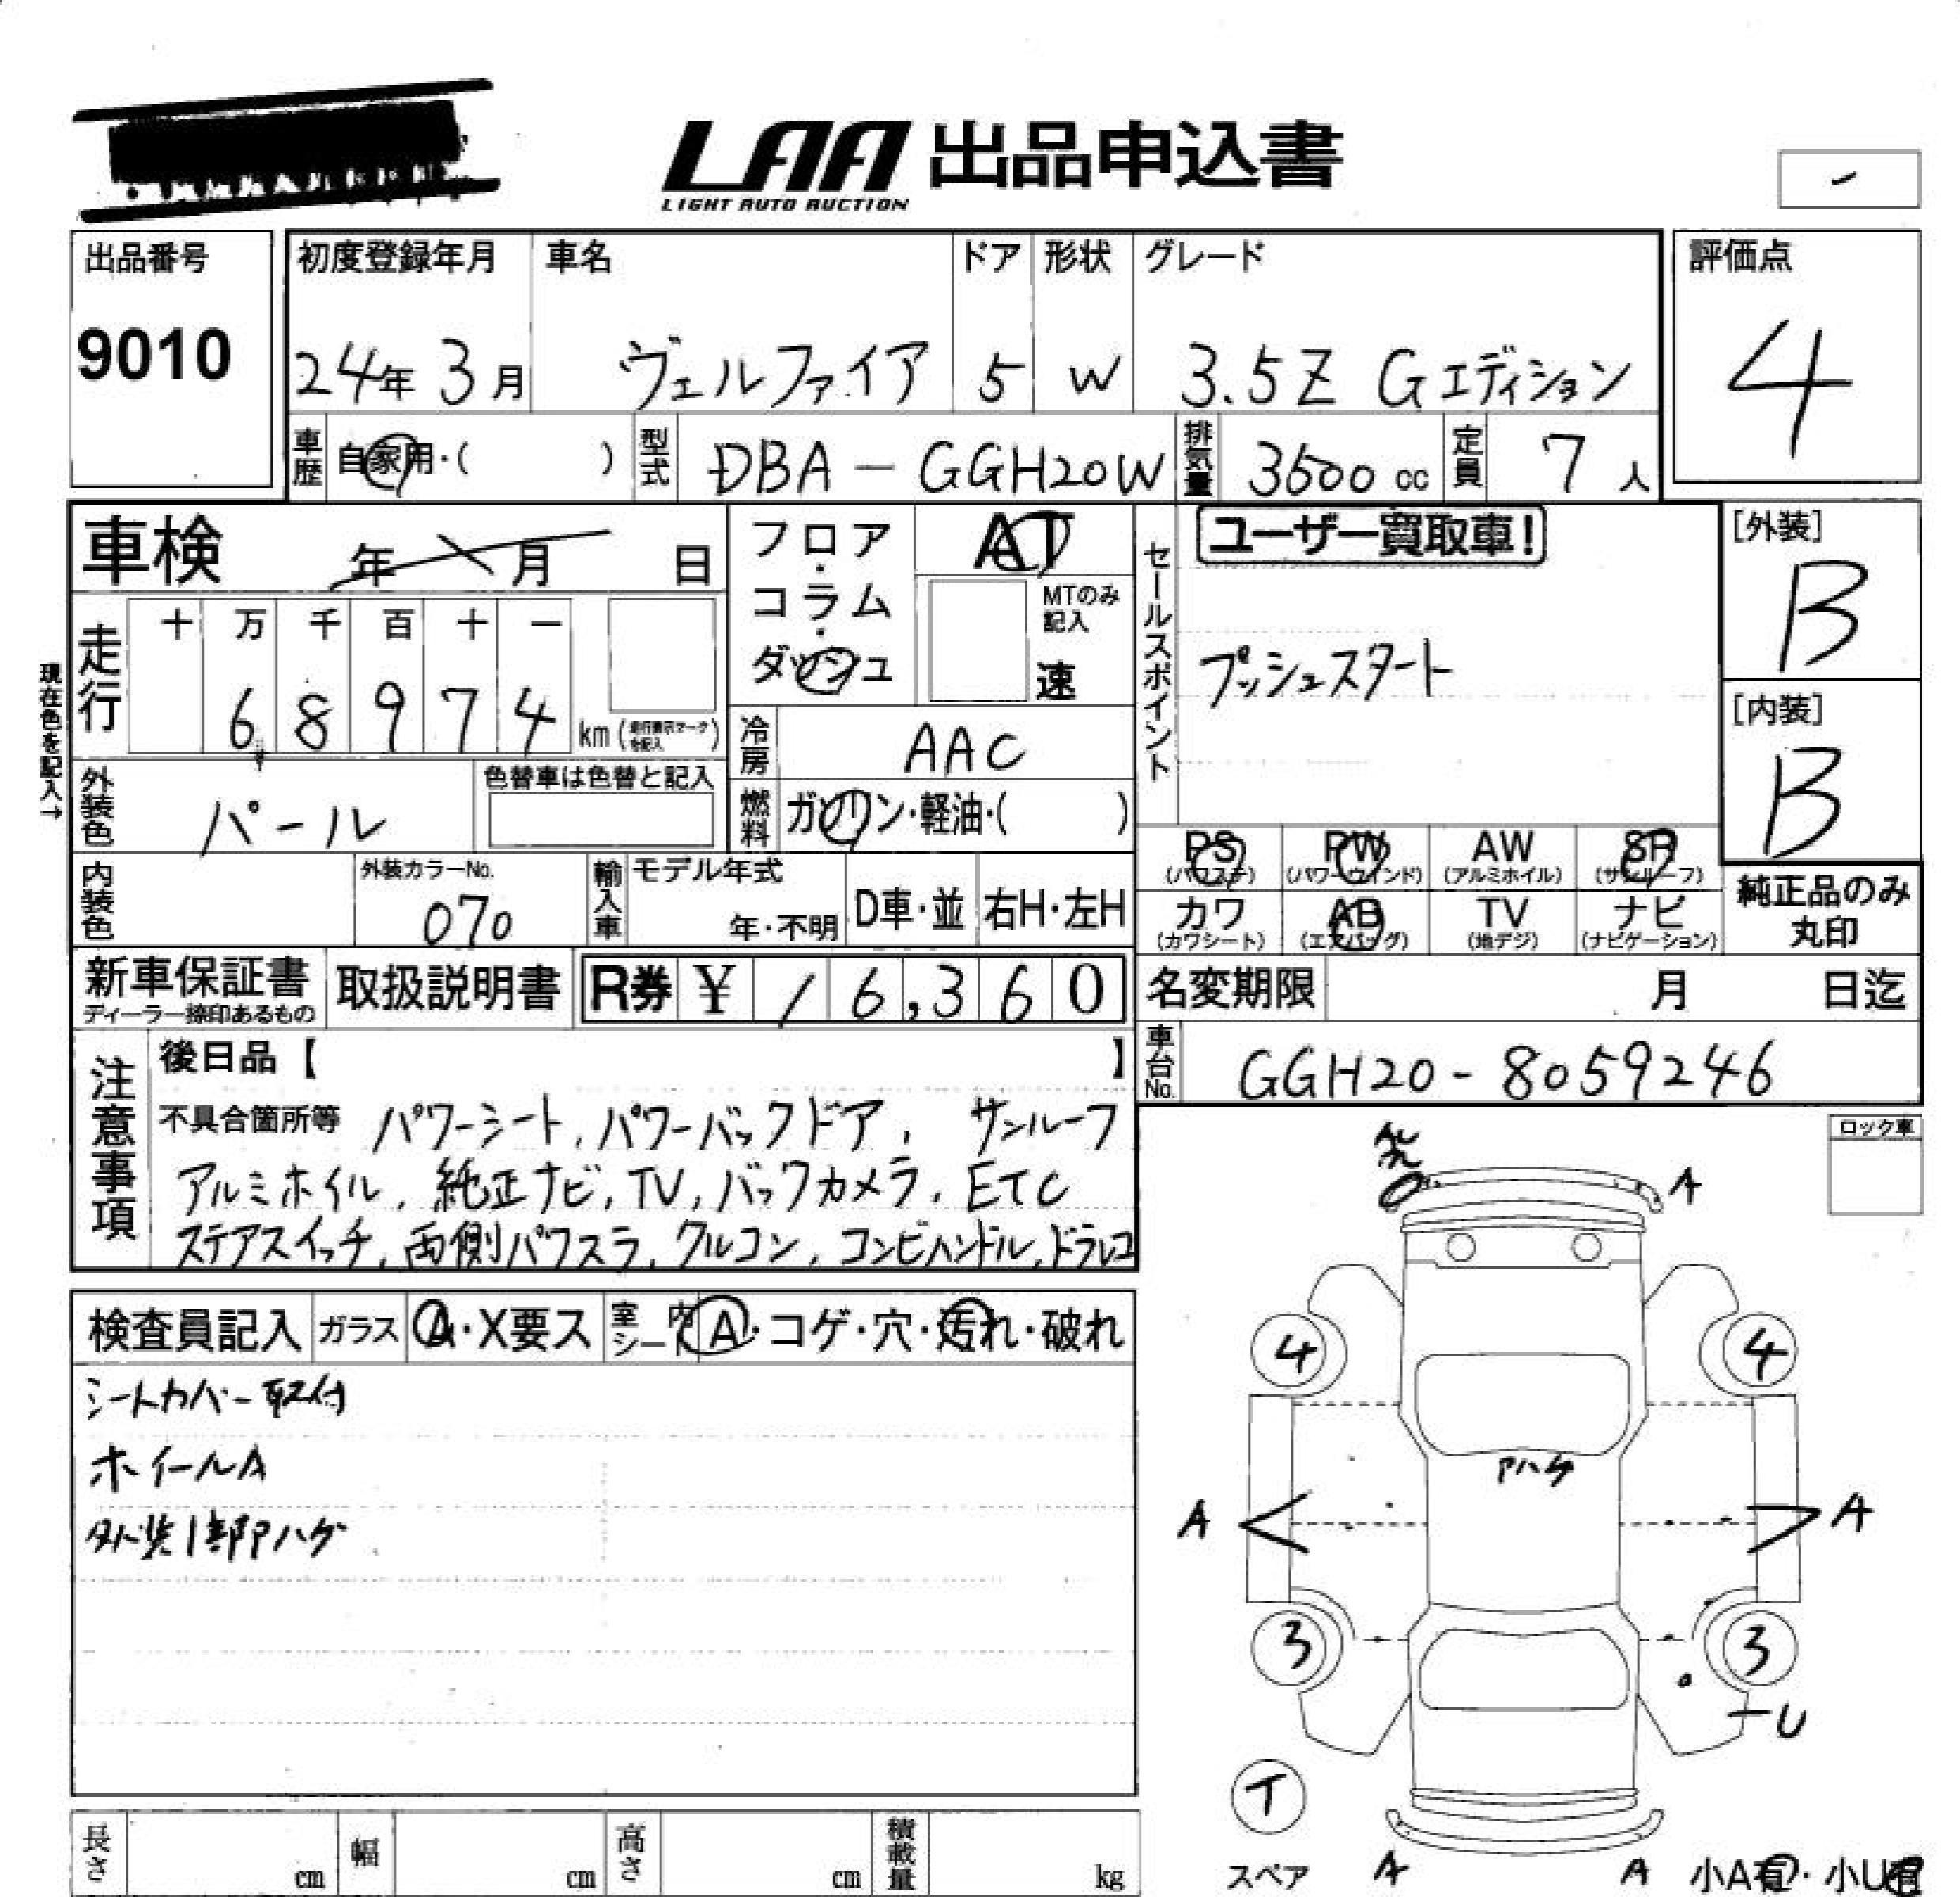 LAA 出品申込書
LIGHT AUTO AUCTION
出品番号 初度登録年月 車名 ドア 形状 グレード 評価点
9010 24年 3月 ヴェルファイア 5 W 3.5Z Gエディション 4
車歴 自家用・( ) 型式 DBA-GGH20W 排気量 3500 cc 定員 7 人
車検 年 月 日
フロア・コラム・ダッシュ
AT
MTのみ記入
速
セールスポイント
ユーザー買取車!
プッシュスタート
[外装]
B
[内装]
B
現在色を記入→
走行 十 万 千 百 十 一
6 8 9 7 4 km (走行表示マークを記入)
冷房 AAC
外装色 パール 色替車は色替と記入
燃料 ガソリン・軽油・( )
PS (パワステ) PW (パワーウインド) AW (アルミホイル) SR (サンルーフ)
カワ (カワシート) AB (エアバッグ) TV (地デジ) ナビ (ナビゲーション)
純正品のみ
丸印
内装色 外装カラーNo. 070 輸入車 モデル年式 年・不明 D車・並 右H・左H
新車保証書 取扱説明書 R券 ¥ 16,360
ディーラー捺印あるもの
名変期限 月 日迄
車台No. GGH20-8059246
注意事項
後日品【 】
不具合箇所等 パワーシート, パワーバックドア, サンルーフ
アルミホイル, 純正ナビ, TV, バックカメラ, ETC
ステアスイッチ, 両側パワスラ, クルコン, コンビハンドル, ドラレコ
ロック車
検査員記入 ガラス A・X要ス 室内シート A・コゲ・穴・汚れ・破れ
シートカバー取付
ホイールA
外装1部Pハゲ
A
4 4
Pハゲ
A A
3 3
U
T
スペア A A 小A有・小U有
長さ cm 幅 cm 高さ cm 積載量 kg